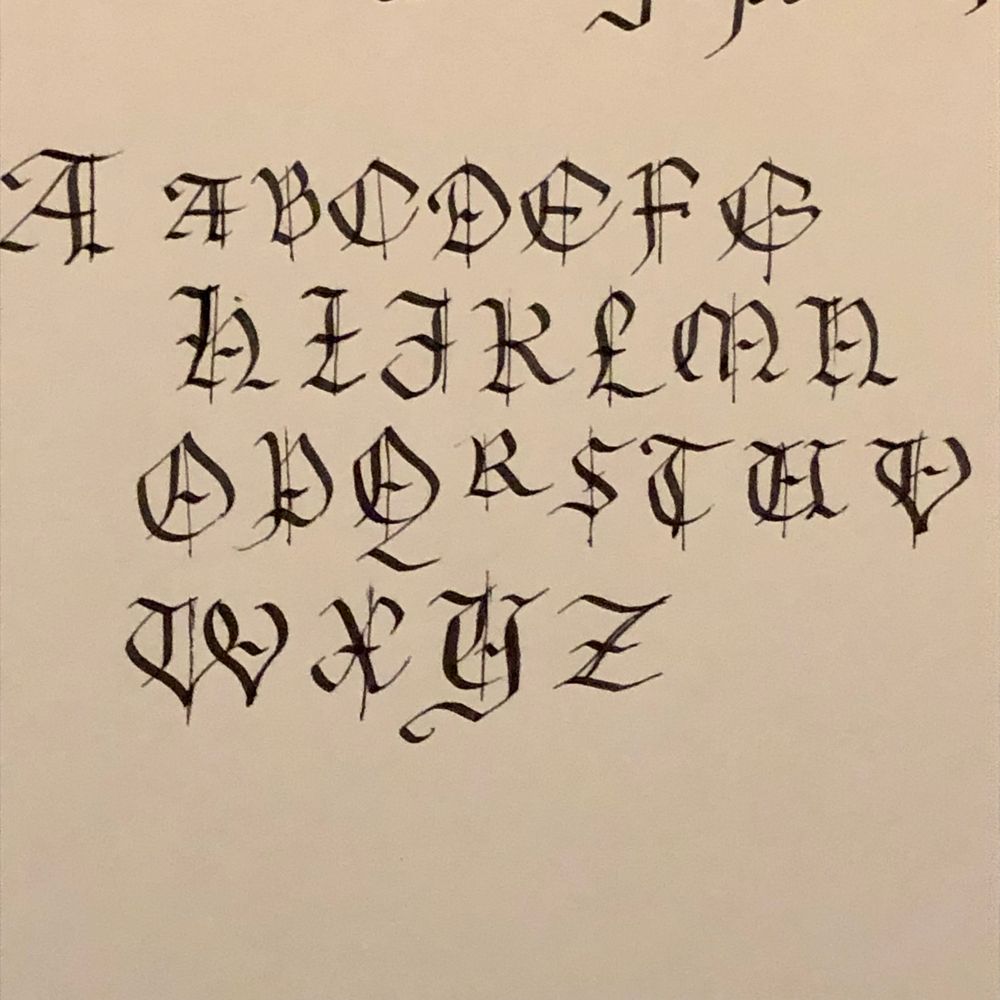 A A B C D E F G
H I J K L M N
O P Q R S T U V
W X Y Z